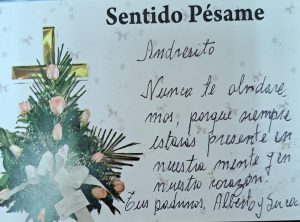 Sentido Pésame
Andresito
Nunca te olvidare
mos, porque siempre
estarás presente en
nuestra mente y en
nuestro corazón.
Tus padrinos, Alberto y